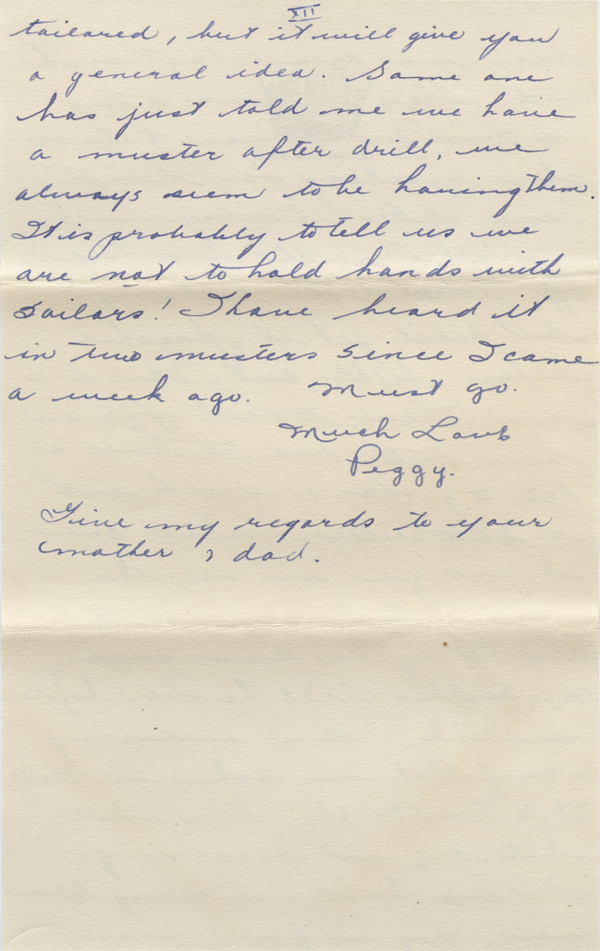 XII
tailored, but it will give you
a general idea. Some one
has just told me we have
a muster after drill, we
always seem to be having them.
It is probably to tell us we
are not to hold hands with
sailors! I have heard it
in two musters since I came
a week ago. Must go.
Much Love
Peggy.
Give my regards to your
mother & dad.